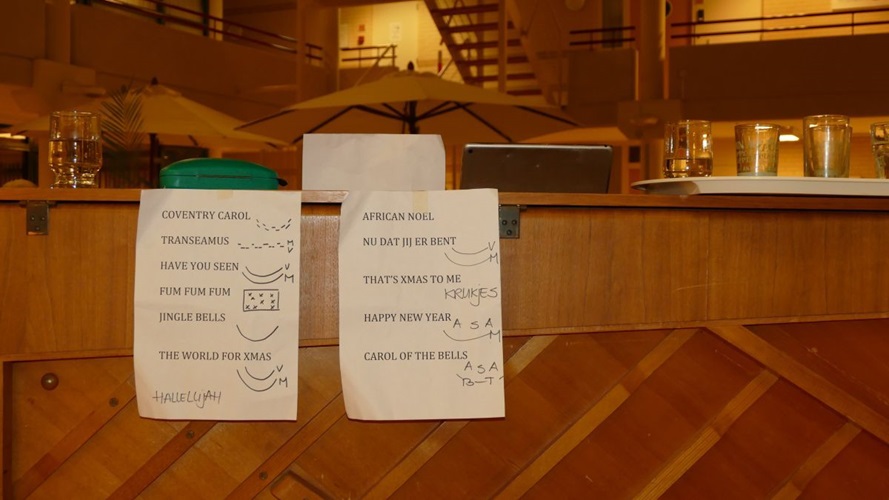 COVENTRY CAROL
TRANSEAMUS V
V
HAVE YOU SEEN V
M
FUM FUM FUM
JINGLE BELLS
THE WORLD FOR XMAS
V
M
HALLELUJAH
AFRICAN NOEL
NU DAT JIJ ER BENT
V
M
THAT'S XMAS TO ME
KRUKJES
HAPPY NEW YEAR A S A
M
CAROL OF THE BELLS
A S A
B-T